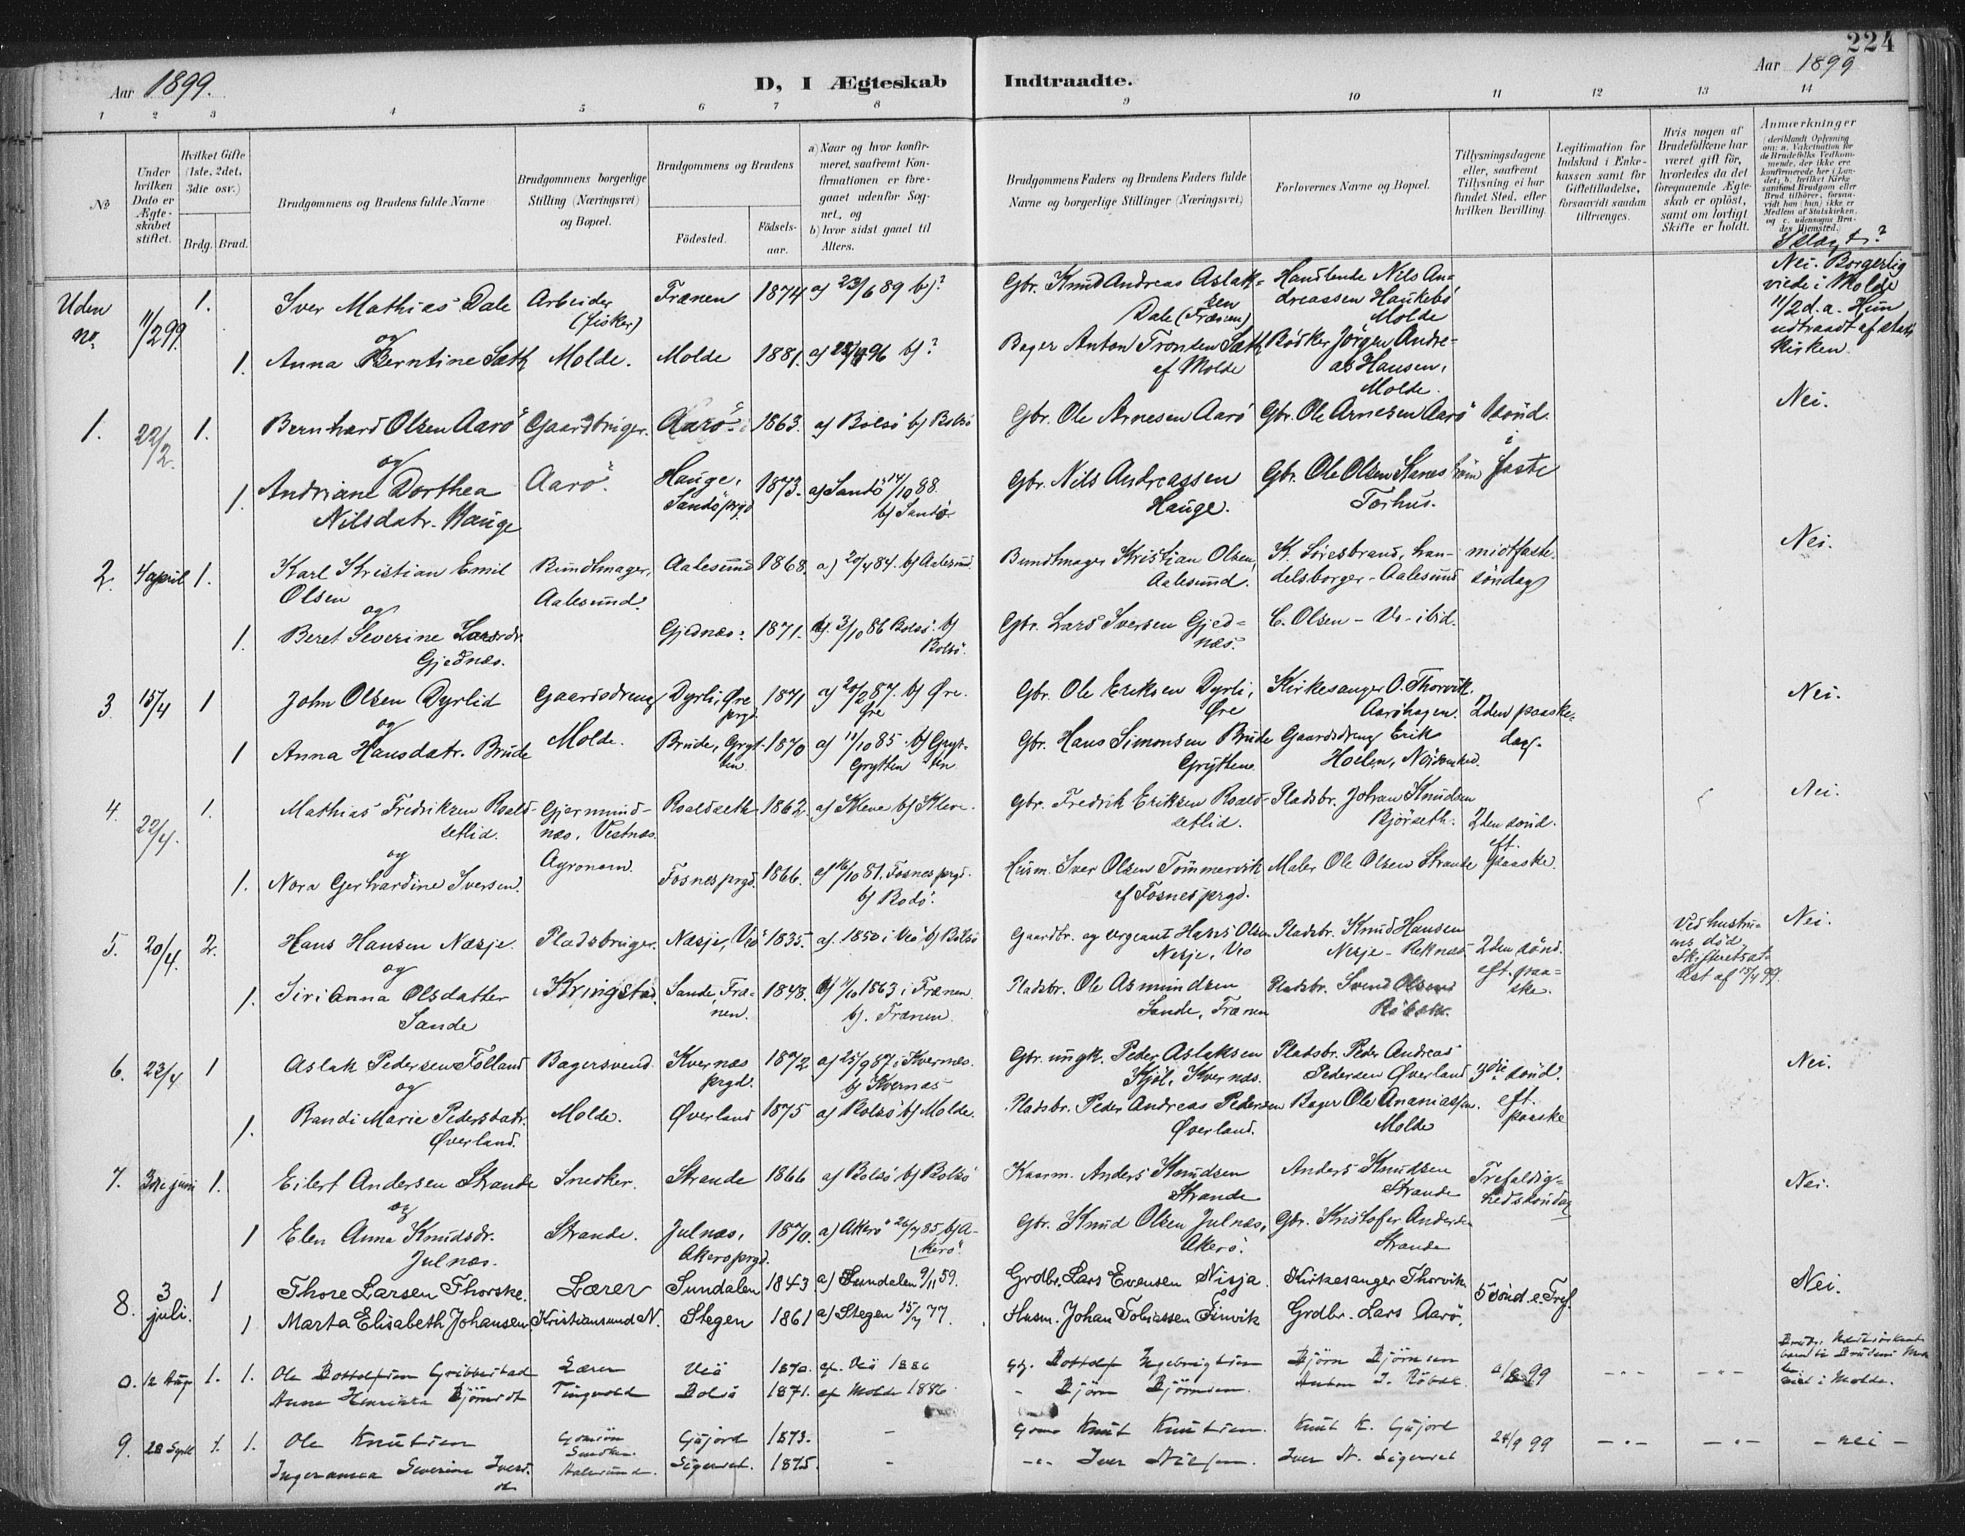 224
Aar 1899.
D, I Ægteskab Indtraadte.
Aar 1899
1 2 3 4 5 6 7 8 9 10 11 12 13 14
No
Under hvilken Dato er Ægteskabet stiftet.
Hvilket Gifte (1ste, 2det, 3die osv.)
Brdg. Brud.
Brudgommens og Brudens fulde Navne
Brudgommens borgerlige Stilling (Næringsvei) og Bopæl.
Brudgommens og Brudens
Fødested.
Fødselsaar.
a) Naar og hvor konfirmeret, saafremt Konfirmationen er foregaaet udenfor Sognet, og
b) hvor sidst gaaet til Alters.
Brudgommens Faders og Brudens Faders fulde Navne og borgerlige Stillinger (Næringsvei)
Forlovernes Navne og Bopæl.
Tillysningsdagene eller, saafremt Tillysning ei har fundet Sted, efter hvilken Bevilling.
Legitimation for Indskud i Enkekassen samt for Giftetilladelse, forsaavidt saadan tiltrænges.
Hvis nogen af Brudefolkene har været gift før, hvorledes da det foregaaende Ægteskab er opløst, samt om lovligt Skifte er holdt.
Anmærkninger
Slægt?
Uden no. 11/2 99. 1. Iver Mathias Dale Arbeider (fisker) Frænen 1874 a) 23/6 89 b)? Gbr. Knud Andreas Aslaksen Dale (Frænen) Handlende Nils Andreassen Haukebö Molde Nei. Borgerlig viede i Molde 11/2 d.a. Hun udtraadt af statskirken.
og
1. Anna Berntine Sæth Molde. Molde 1881. b)? Bager Anton Tronsen Sæth af Molde Bösker Jörgen Andreas Hansen, Molde.
1. 22/2. 1. Bernhard Olsen Aarö Gaardbruger. Aarö 1863. a) Bolsö b) Bolsö Gbr. Ole Arnesen Aarö Gbr. Ole Arnesen Aarö 1 sönd. i faste Nei.
og
1. Andriane Dorthea Nilsdatr. Hauge Aarö. Hauge, Sandöprgd. 1873. a) Sandö 14/10 88. b) Sandö Gbr. Nils Andreassen Hauge. Gbr. Ole Olsen Torhus.
2. 4 april 1. Karl Kristian Emil Olsen Bundtmager, Aalesund. Aalesund 1868. a) 20/4 84. b) Aalesund. Bundtmager Kristian Olsen, Aalesund. K. Sörebrand, handelsborger - Aalesund midtfastesöndag Nei.
og
1. Beret Severine Larsdr. Gjednæs. Gjednæs. 1871. 3/10 86 Bolsö. b) Bolsö. Gbr. Lars Iversen Gjednæs. C. Olsen - ibid.
3. 15/4 1 John Olsen Dyrlid Gaardsdreng Dyrli, Øre prgd. 1871 a) 20/2 87. Øre b) Øre. Gbr. Ole Eriksen Dyrli, Øre Kirkesanger O. Thorvik. Aaröhagen. 2den paaskedag. Nei.
og
1 Anna Hansdatr. Brude Molde. Brude, Grytten 1870 a) 11/10 85. Grytten b) Grytten Gbr. Hans Simonsen Brude Grytten Gaardsdreng Erik Hoelen,
4. 22/4. 1. Mathias Fredriksen Roaldsetlid. Gjermundnæs, Vestnæs. Agronom. Roaldseth 1862. a) Kleve b) Kleve. Gbr. Fredrik Eriksen Roaldsetlid. Pladsbr. Johan Knudsen Bjørseth. 2den sönd. eft. paaske. Nei.
og
1. Nora Gerhardine Iversen. Fosnesprgd. 1866. a) 16/10 81. Fosnesprgd. b) Bodö. Husm. Iver Olsen Tömmervik af Fosnesprgd. Maler Ole Olsen Strande
5. 20/4. 2. Hans Hansen Næsje. Pladsbruger. Næsje, Veö 1835. a) 1850 i Veö b) Bolsö Gaardbr. og sergeant Hans Olsen Nesje, Veö Pladsbr. Knud Hansen Nesje - Reknæs 2den sönd. eft. paaske. Ved hustruens död. Skifteretsattest af 15/4 99. Nei.
og
1. Siri Anna Olsdatter Sande Kringstad Sande, Frænen. 1848. 1863 i Frænen. b). Frænen. Pladsbr. Ole Asmundsen Sande, Frænen Pladsbr. Svend Olsen Röbek.
6. 23/4 1 Aslak Pedersen Folland Bagersvend Kvernæs prgd. 1872 a) 25/9 87 i Kvernæs. b) Kvernæs Gbr. ungk. Peder Aslaksen Kjöl, Kvernæs. Pladsbr. Peder Andreas Pedersen Øverland 3die sönd. eft. paaske Nei.
og
1. Randi Marie Pedersdatr. Øverland. Molde. Øverland 1875 a) Bolsö b) Molde. Pladsbr. Peder Andreas Pedersen Øverland. Bager Ole Ananiassen. Molde
7. 3die juni 1. Eilert Andersen Strande Snedker. Strande 1866 a) Bolsö b) Bolsö Kaarm. Anders Knudsen Strande Anders Knudsen Strande Trefoldighedssöndag Nei.
og
1 Elen Anna Knudsdr. Julnæs. Strande. Julnæs, Akeröprgd. 1870. a) Akerö 26/7 85 b) Akerö. Gbr. Knud Olsen Julnæs, Akerö. Gbr. Kristofer Andersen Strande
8. 3 juli. 1 Thore Larsen Thorske. Lærer Sundalen 1843 a) Sundalen 9/11 59. Grdbr. Lars Evensen Nisja. Kirkesanger Thorvik 5 sönd. e. Tref. Nei.
1 Marta Elisabeth Johansen Kristiansund N. Stegen 1861 a) Stegen 15/7 77. Husm. Johan Tobiassen Finvik Grdbr. Lars Aarö.
12 Aug 1. 1. Ole Bottolfsen Gribbestad Lærer Veö 1870. af. Veö 1886 Bottolf Ingebrigtsen Björn Björnsen 99 i Molde.
Anna Henrikka Björnsdt Tingvold Bolsö 1871. af Molde 1886 - Björn Björnsen. Anton J. Röbek
9. 28 Sept 1. 1. Ole Knutsen Snedker Aalesund. Gujord 1873. - Knut Knutsen. Knut K. Gujord 24/9 99 - nei -
Severine Iversd. 1875. - Iver Nilsen. Iver N.